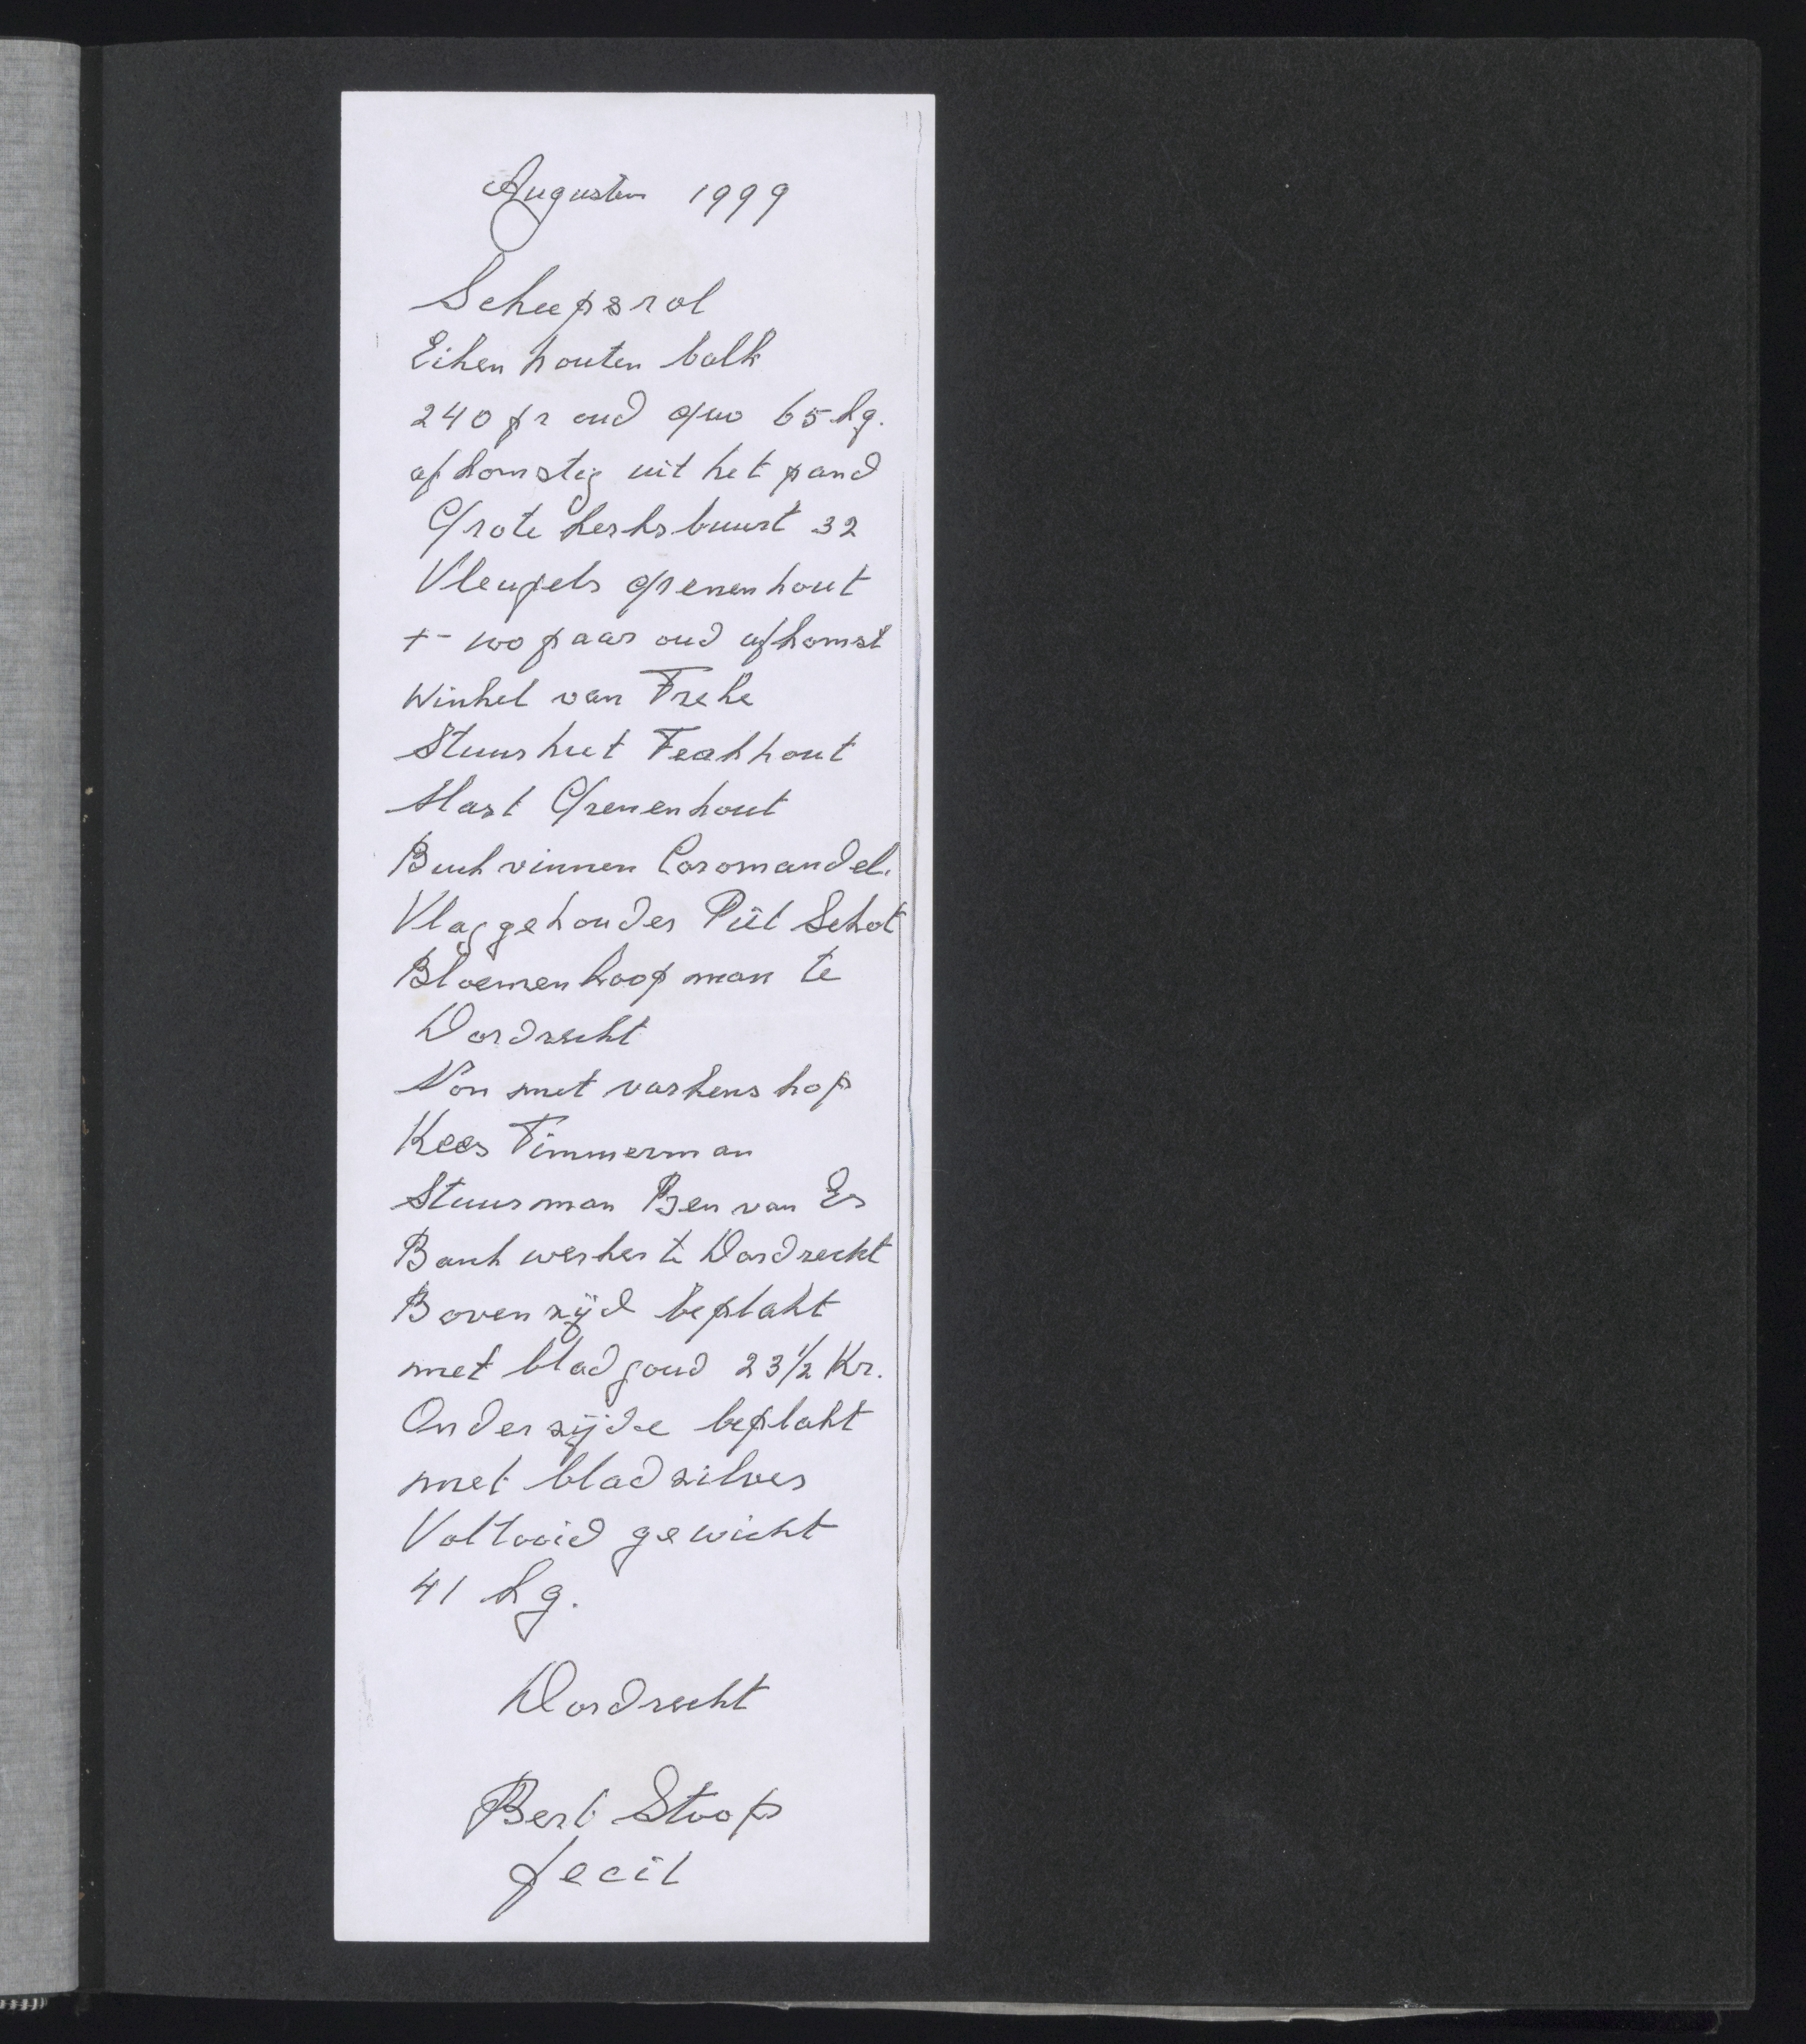 Augustus 1999
Scheepsrol
Eikenhouten balk
240 jr oud gew 65 kg.
afkomstig uit het pand
Grote Kerksbuurt 32
Vleugels grenenhout
+- 100 jaar oud afkomst
Winkel van Freke
Stuurhut Teakhout
Mast Grenenhout
Buikvinnen Coromandel.
Vlaggehouder Piet Schot
Bloemenkoopman te
Dordrecht
Non met varkenskop
Kees Timmerman
Stuurman Ben van Es
Bankwerker te Dordrecht
Bovenzijd beplakt
met bladgoud 23½ Kr.
Onderzijde beplakt
met bladzilver
Voltooid gewicht
41 kg.
Dordrecht
Bert Stoop
fecit